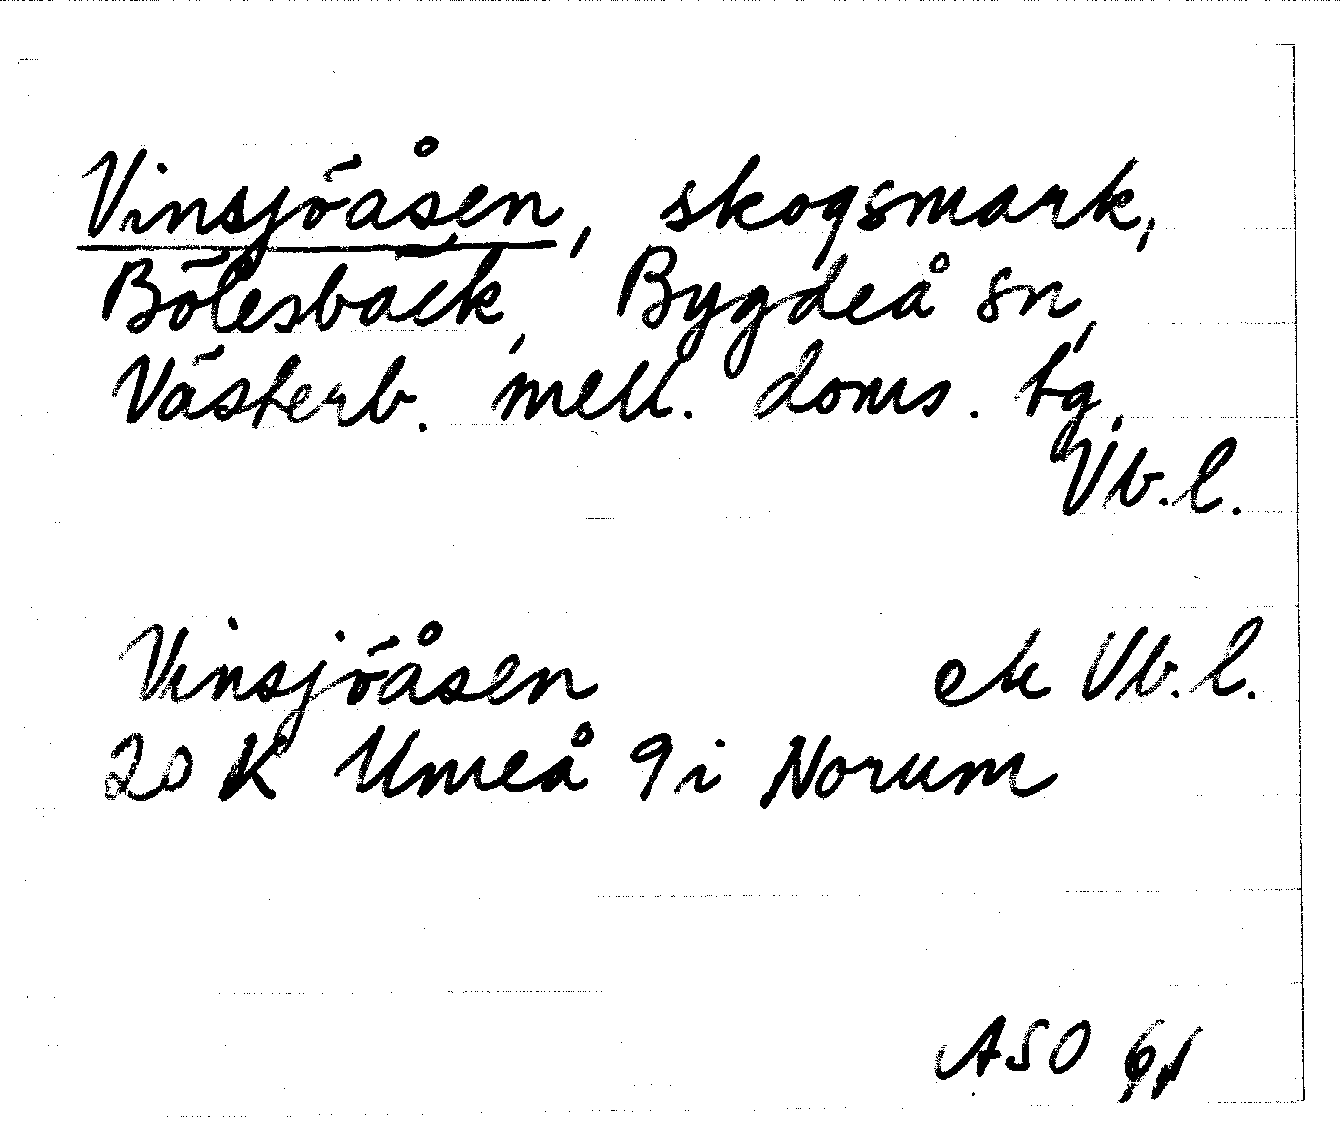 Vinsjöåsen, skogsmark,
Bölesbäck, Bygdeå sn,
Västerb. mell. doms. tg,
Vb.l.
Vinsjöåsen ek Vb.l.
20 K Umeå 9i Norum
ASO 61